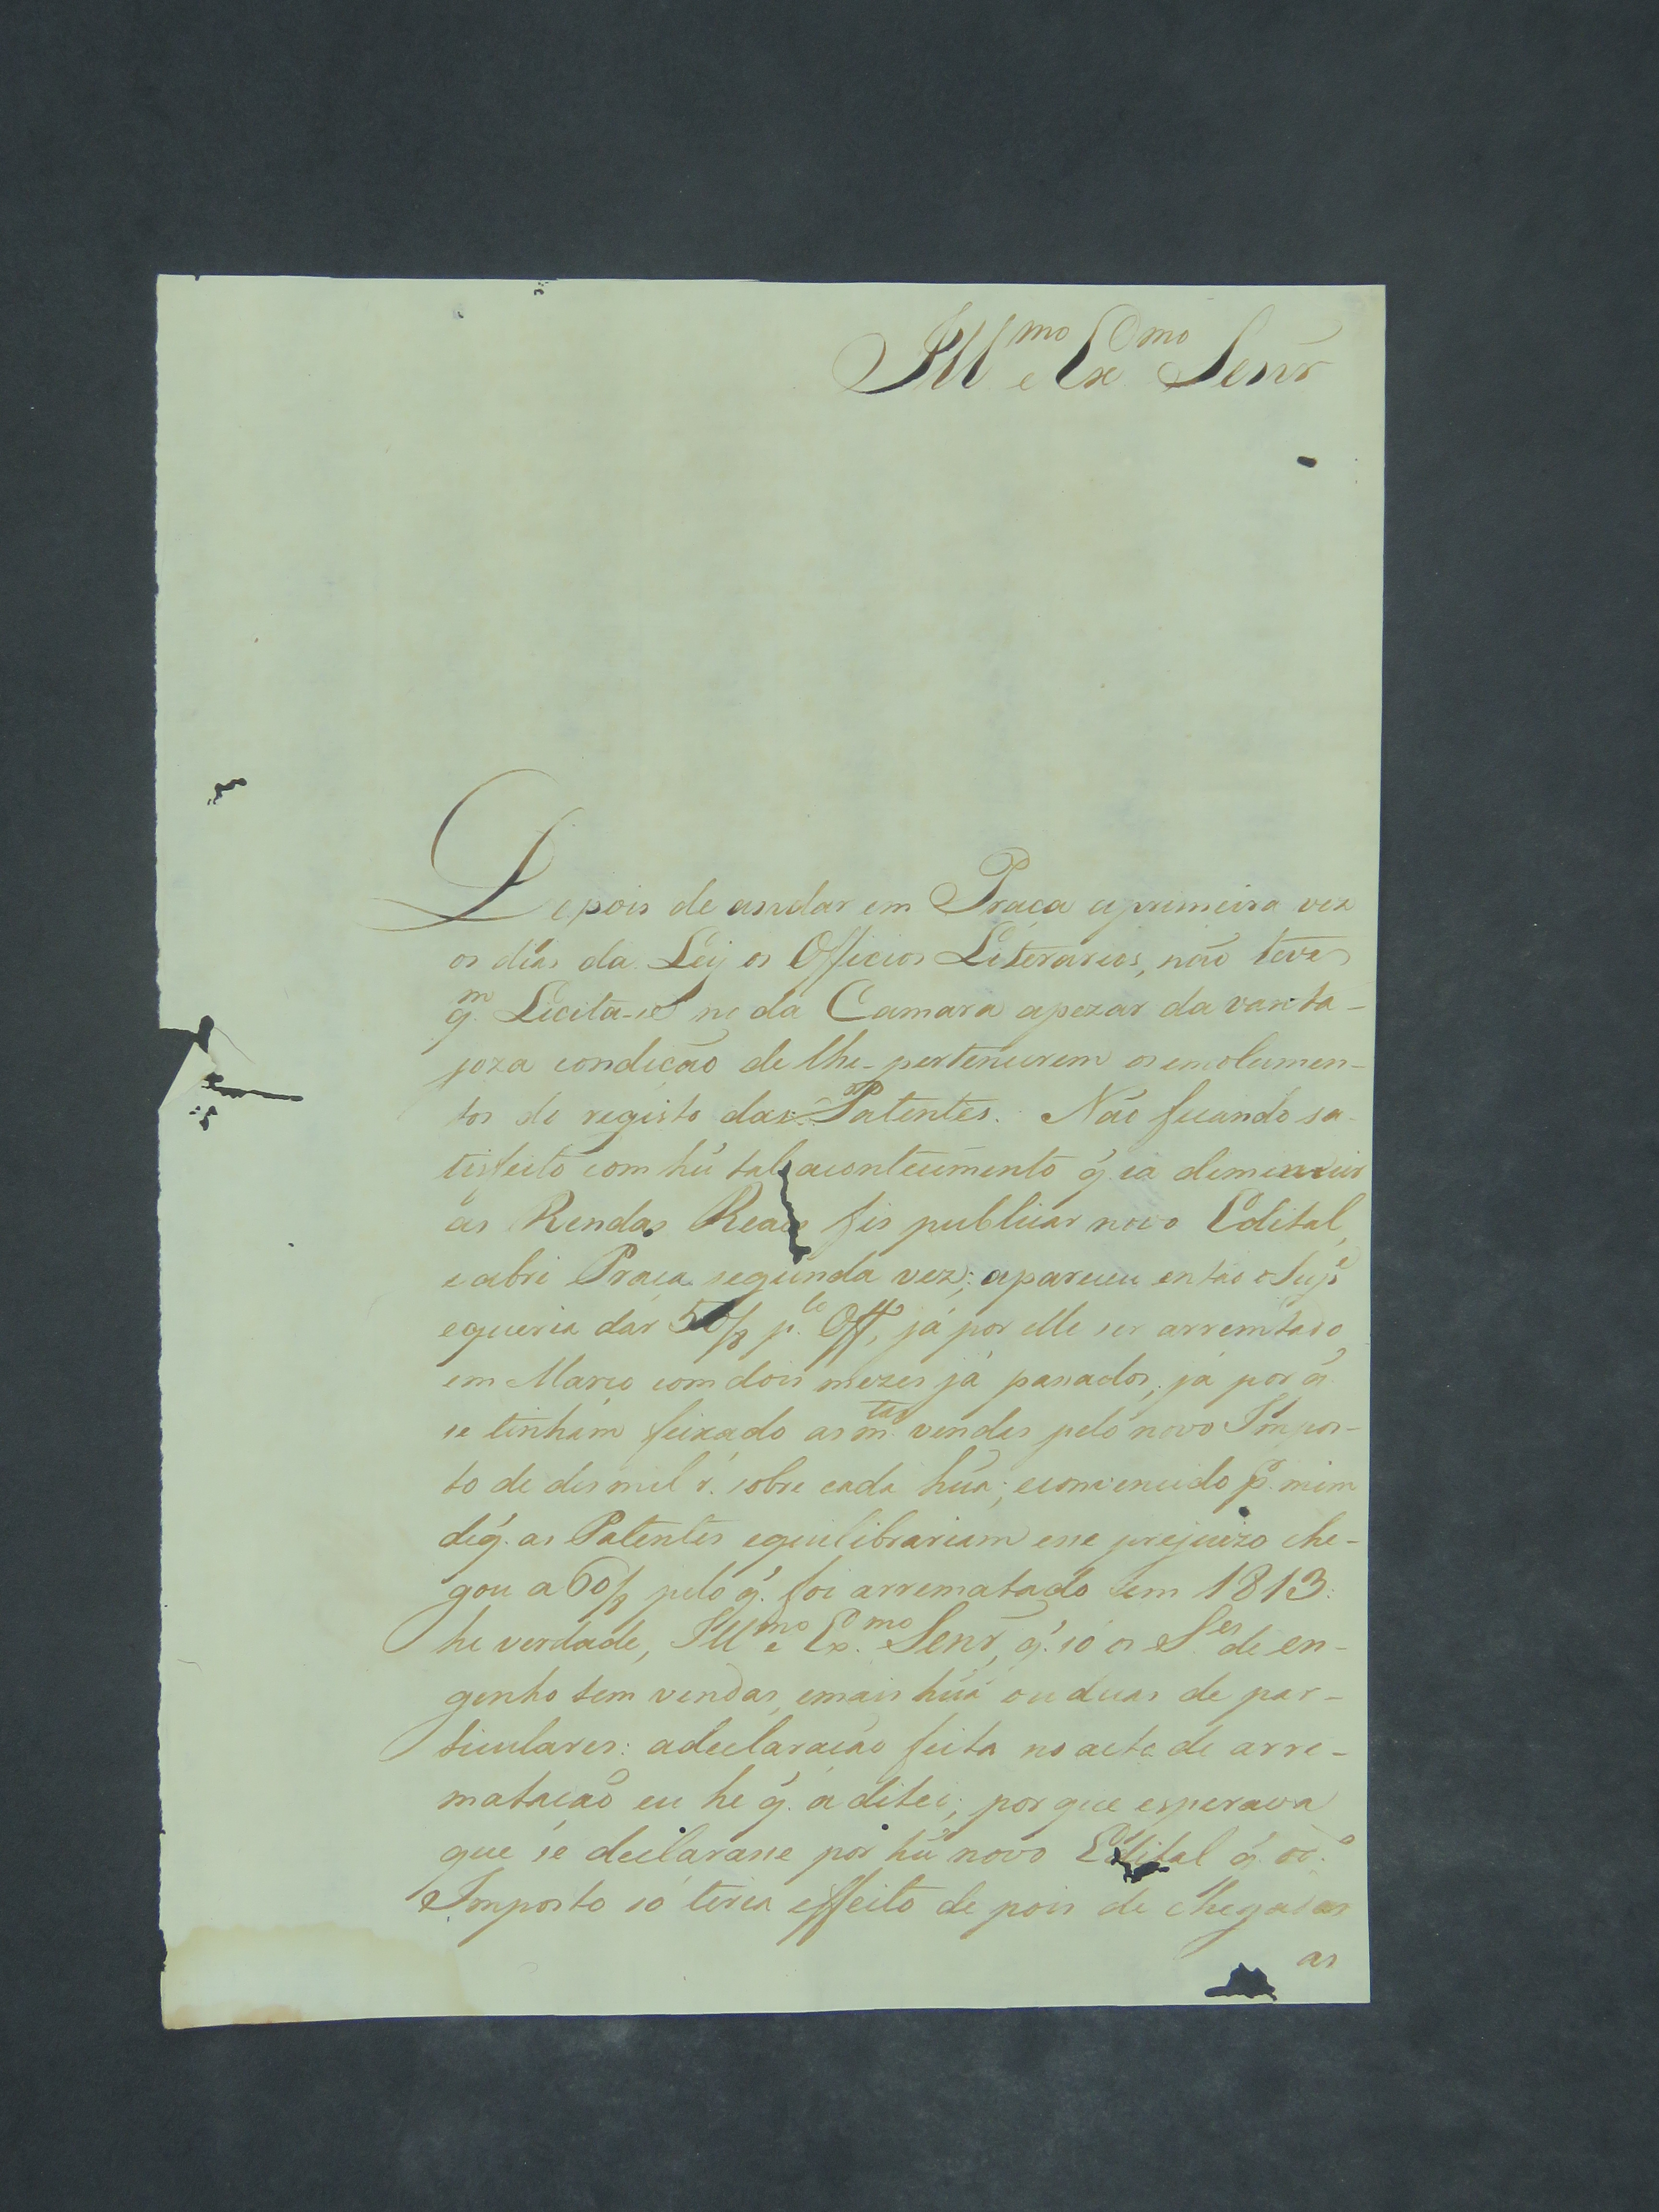 Ill.mo e Ex.mo Senr
Depois de andar em Praça a primeira vez
os dias da Ley os Officios Literarios, não teve
q.m Licita-se no da Camara apezar da vanta-
joza condição de lhe-pertencerem os emolumen-
tos do registo das Patentes. Não ficando sa-
tisfeito com hú tal acontecimento q̃ ia diminuir
as Rendas Reaes fis publicar novo Edital,
e abri Praça segunda vez; apareceu então o Sup.e
e queria dar 50/8 p.lo Off, já por elle ser arremtado
em Março com dois mezes já passados, já por q̃
se tinham feixado as m.tas vendas pelo novo Impos-
to de des mil r. sobre cada húa; e convencido p.r mim
de q̃. as Patentes equilibrariam esse prejuizo che-
gou a 60/8 pelo q̃. foi arrematado em 1813:
he verdade, Ill.mo e Ex.mo Senr, q̃. só os S.es de en-
genho tem vendas, e mais húa ou duas de par-
ticulares: a declaração feita no acto de arre-
matação eu he q̃. a ditei; por que esperava
que se declarasse por hú novo Edital q̃. o
Imposto só teria effeito de pois de chegadas
as